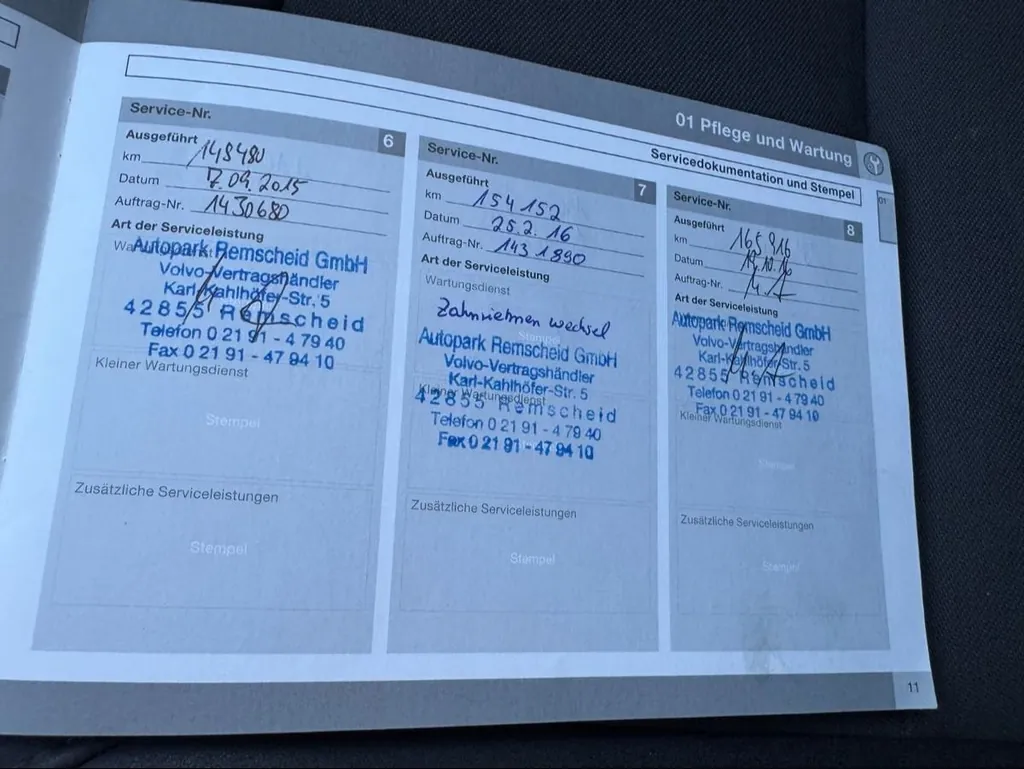 01 Pflege und Wartung
Servicedokumentation und Stempel
01
Service-Nr. 6
Ausgeführt
km 148480
Datum 7.09.2015
Auftrag-Nr. 1430680
Art der Serviceleistung
Autopark Remscheid GmbH
Volvo-Vertragshändler
Karl-Kahlhöfer-Str. 5
42855 Remscheid
Telefon 0 21 91 - 4 79 40
Fax 0 21 91 - 47 94 10
Kleiner Wartungsdienst
Stempel
Zusätzliche Serviceleistungen
Stempel
Service-Nr. 7
Ausgeführt
km 154152
Datum 25.2.16
Auftrag-Nr. 1431890
Art der Serviceleistung
Wartungsdienst
Zahnriehmen wechsel
Stempel
Autopark Remscheid GmbH
Volvo-Vertragshändler
Karl-Kahlhöfer-Str. 5
Kleiner Wartungsdienst
42855 Remscheid
Telefon 0 21 91 - 4 79 40
Fax 0 21 91 - 47 94 10
Zusätzliche Serviceleistungen
Stempel
Service-Nr. 8
Ausgeführt
km 165916
Datum
Auftrag-Nr.
Art der Serviceleistung
Autopark Remscheid GmbH
Volvo-Vertragshändler
Karl-Kahlhöfer-Str. 5
42855 Remscheid
Telefon 0 21 91 - 4 79 40
Fax 0 21 91 - 47 94 10
Kleiner Wartungsdienst
Stempel
Zusätzliche Serviceleistungen
Stempel
11